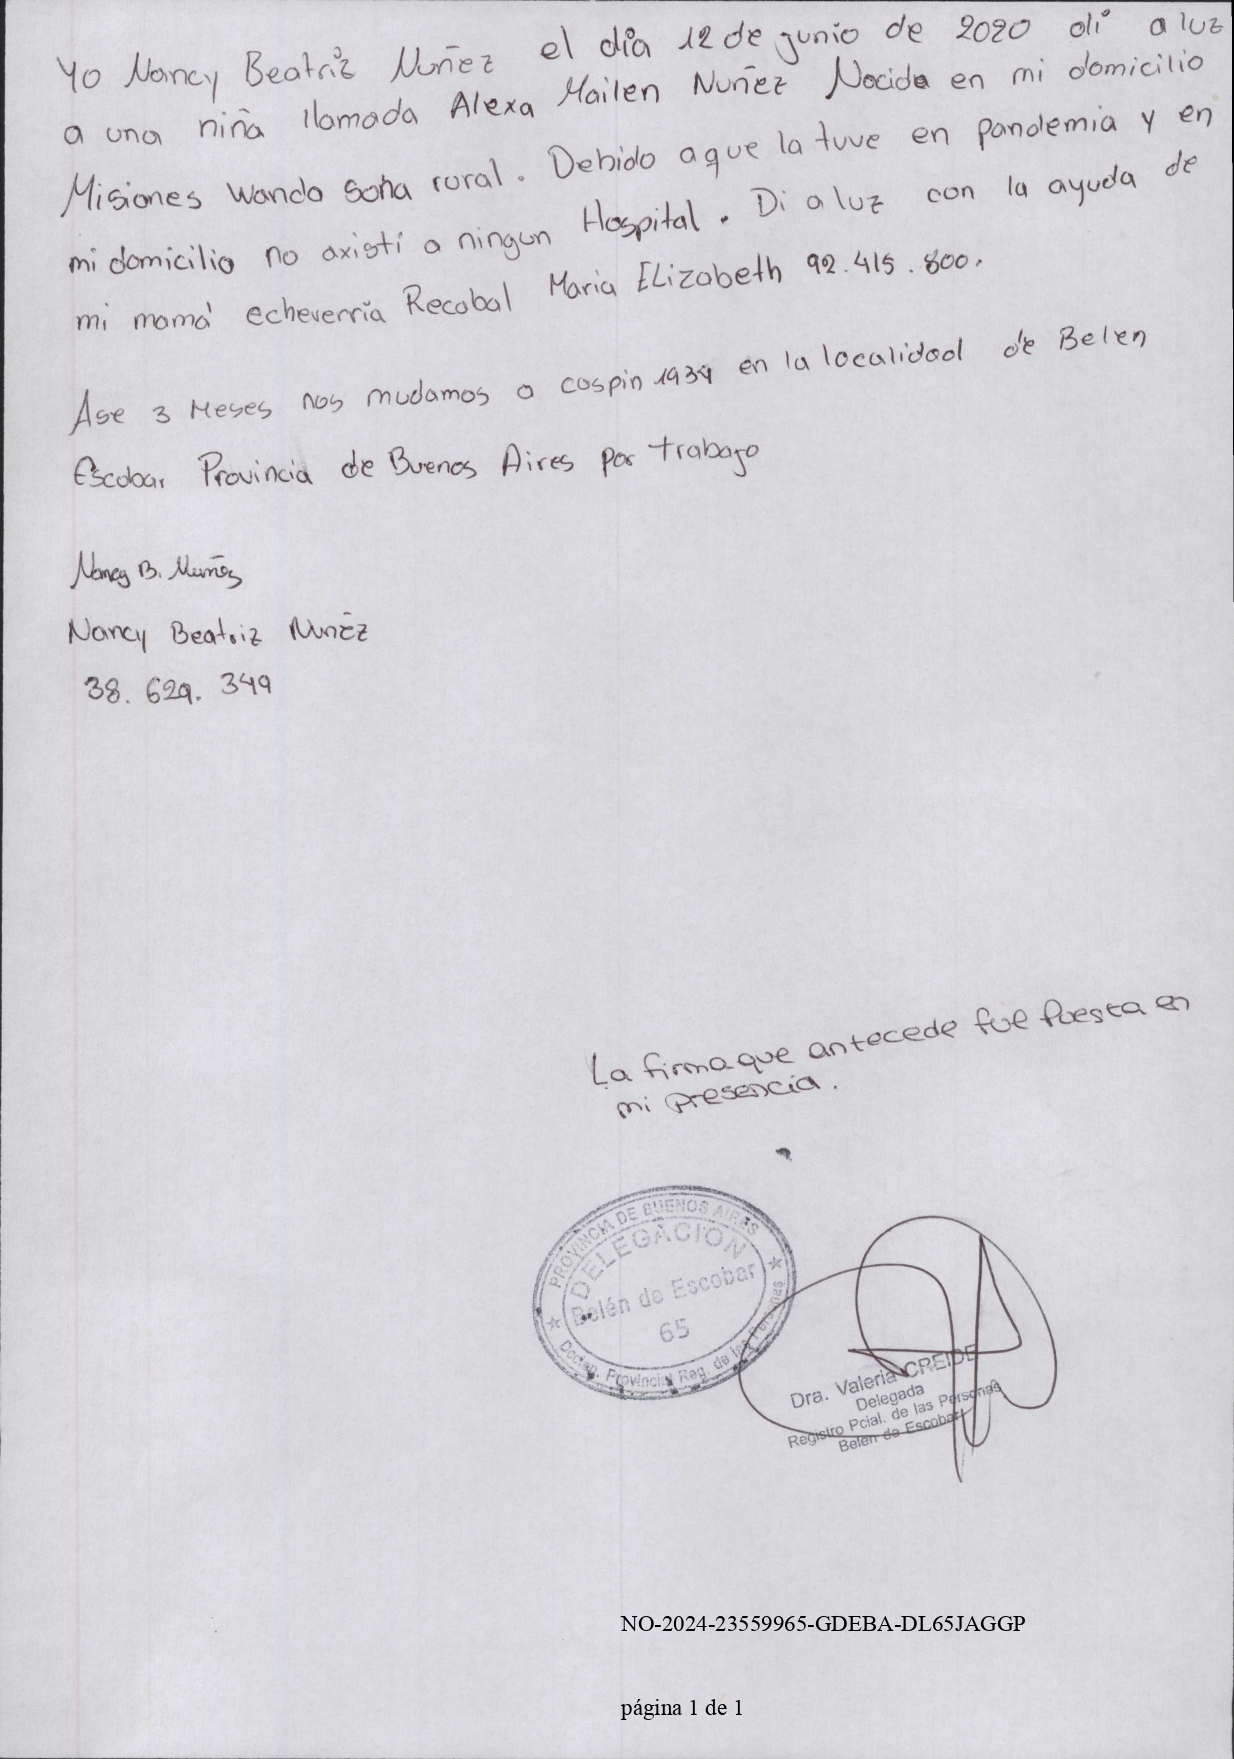 Yo Nancy Beatriz Nuñez el día 12 de junio de 2020 di a luz
a una niña llamada Alexa Mailen Nuñez Nacida en mi domicilio
Misiones Wanda soña rural. Debido a que la tuve en pandemia y en
mi domicilio no axistí a ningun Hospital. Di a luz con la ayuda de
mi mamá echeverría Recabal Maria ELizabeth 92.415.800.
Ase 3 Meses nos mudamos a cospin 1934 en la localidad de Belen
Escobar Provincia de Buenos Aires por trabajo
Nancy B. Nuñez
Nancy Beatriz Nuñez
38.629.349
La firma que antecede fue Puesta en
mi Presencia.
PROVINCIA DE BUENOS AIRES
DELEGACION
Belén de Escobar
65
Provincial Reg. de las
Dra. Valeria CREIDE
Delegada
Registro Pcial. de las Personas
Belén de Escobar
NO-2024-23559965-GDEBA-DL65JAGGP
página 1 de 1